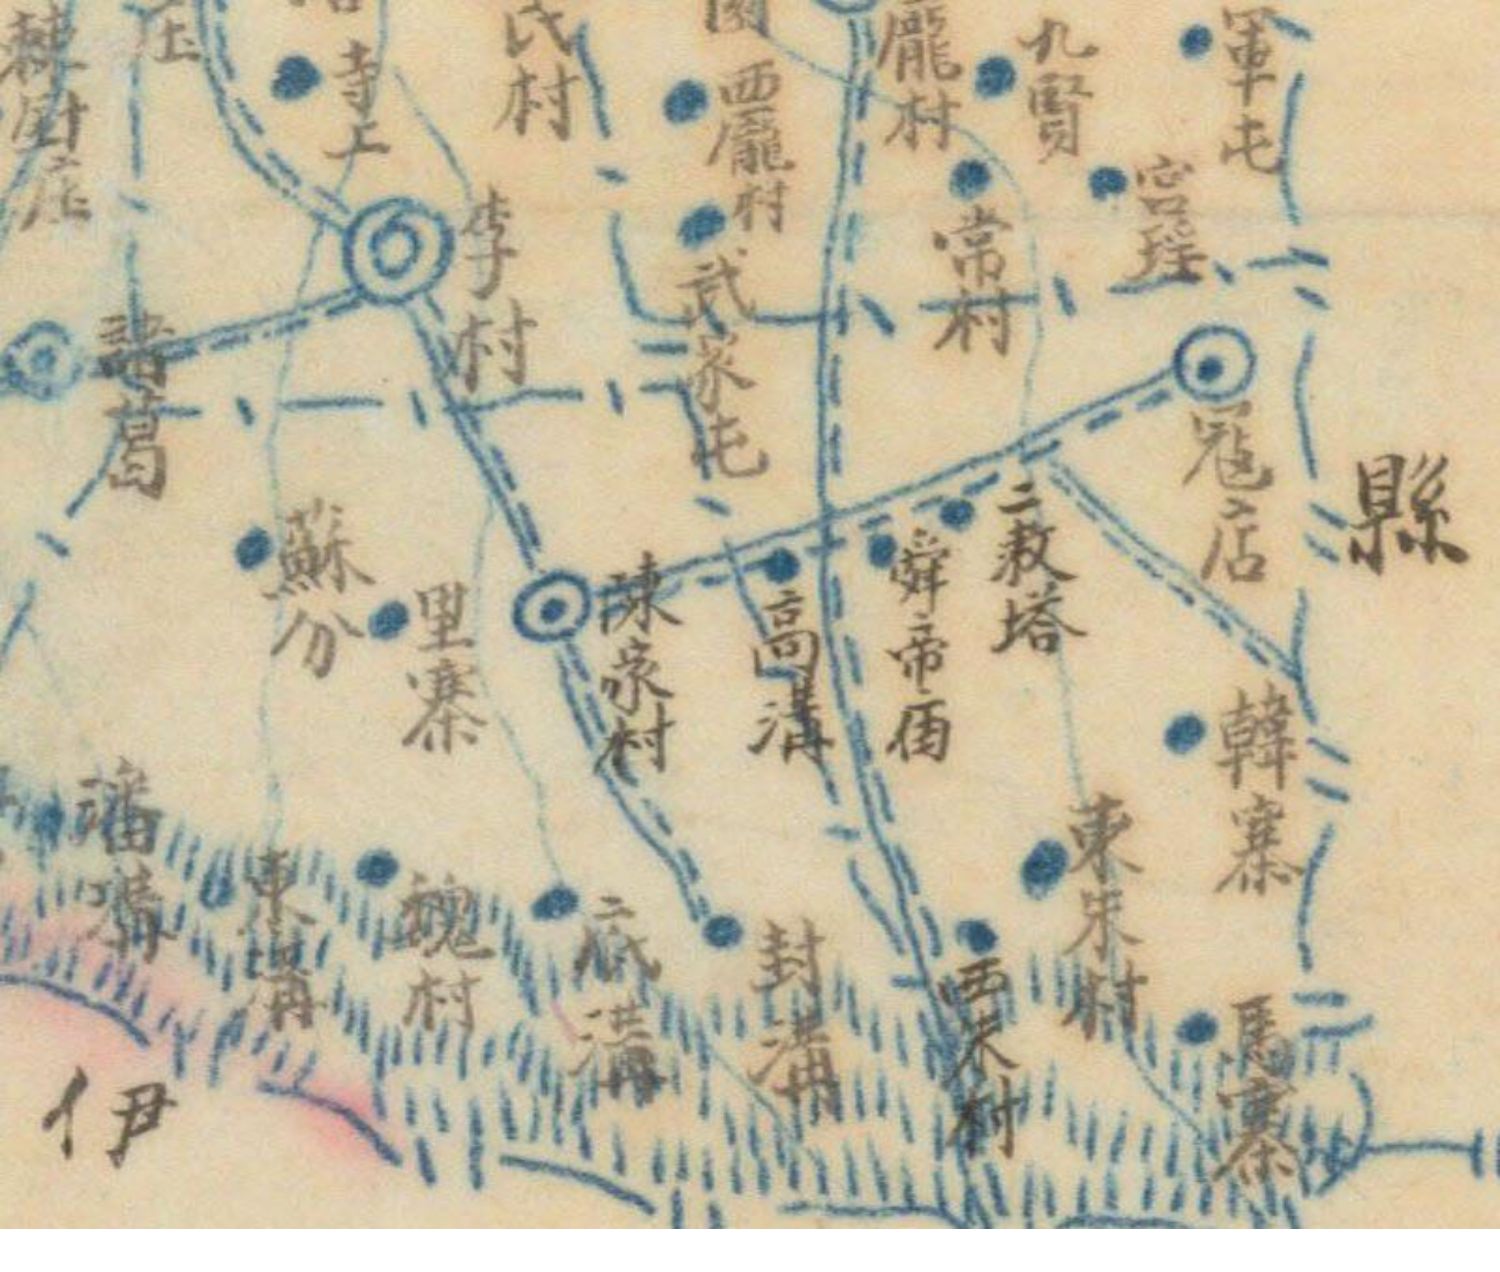 軍屯
九賢
龐村
西龐村
氏村
寺上
庄
宫瑶
常村
武家屯
李村
諸葛
縣
寇店
二救塔
舜帝庙
高溝
陳家村
里寨
蘇分
韓寨
東朱村
西朱村
馬寨
封溝
底溝
魏村
東溝
潘溝
伊